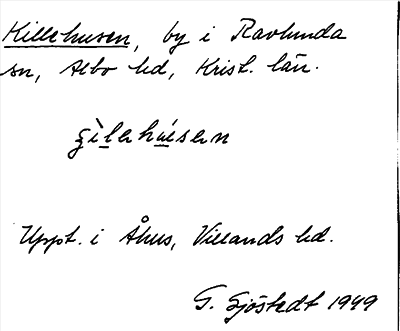 Killehusen, by i Ravlunda
sn, Albo hd, Krist. län.
gìlehúsen
Uppt. i Åhus, Villands hd.
G. Sjöstedt 1949